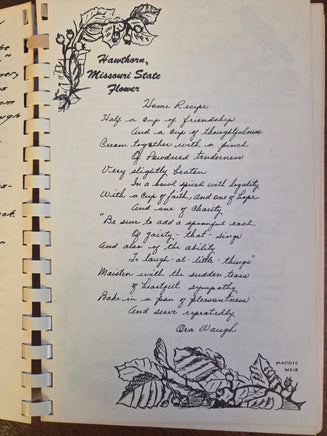 Hawthorn,
Missouri State
Flower
Home Recipe
Half a cup of friendship
And a cup of thoughtfulness
Cream together with a pinch
Of Powdered tenderness
Very slightly beaten
In a bowl spiced with loyalty
With a cup of faith, and one of hope
And one of charity
"Be sure to add a spoonful each
Of gaiety - that - sings
And also of the ability
To laugh - at - little - things"
Moisten with the sudden tears
of heartfelt sympathy
Bake in a pan of pleasantness
And serve repeatedly
Ora Waugh
MARGIE
WEIR